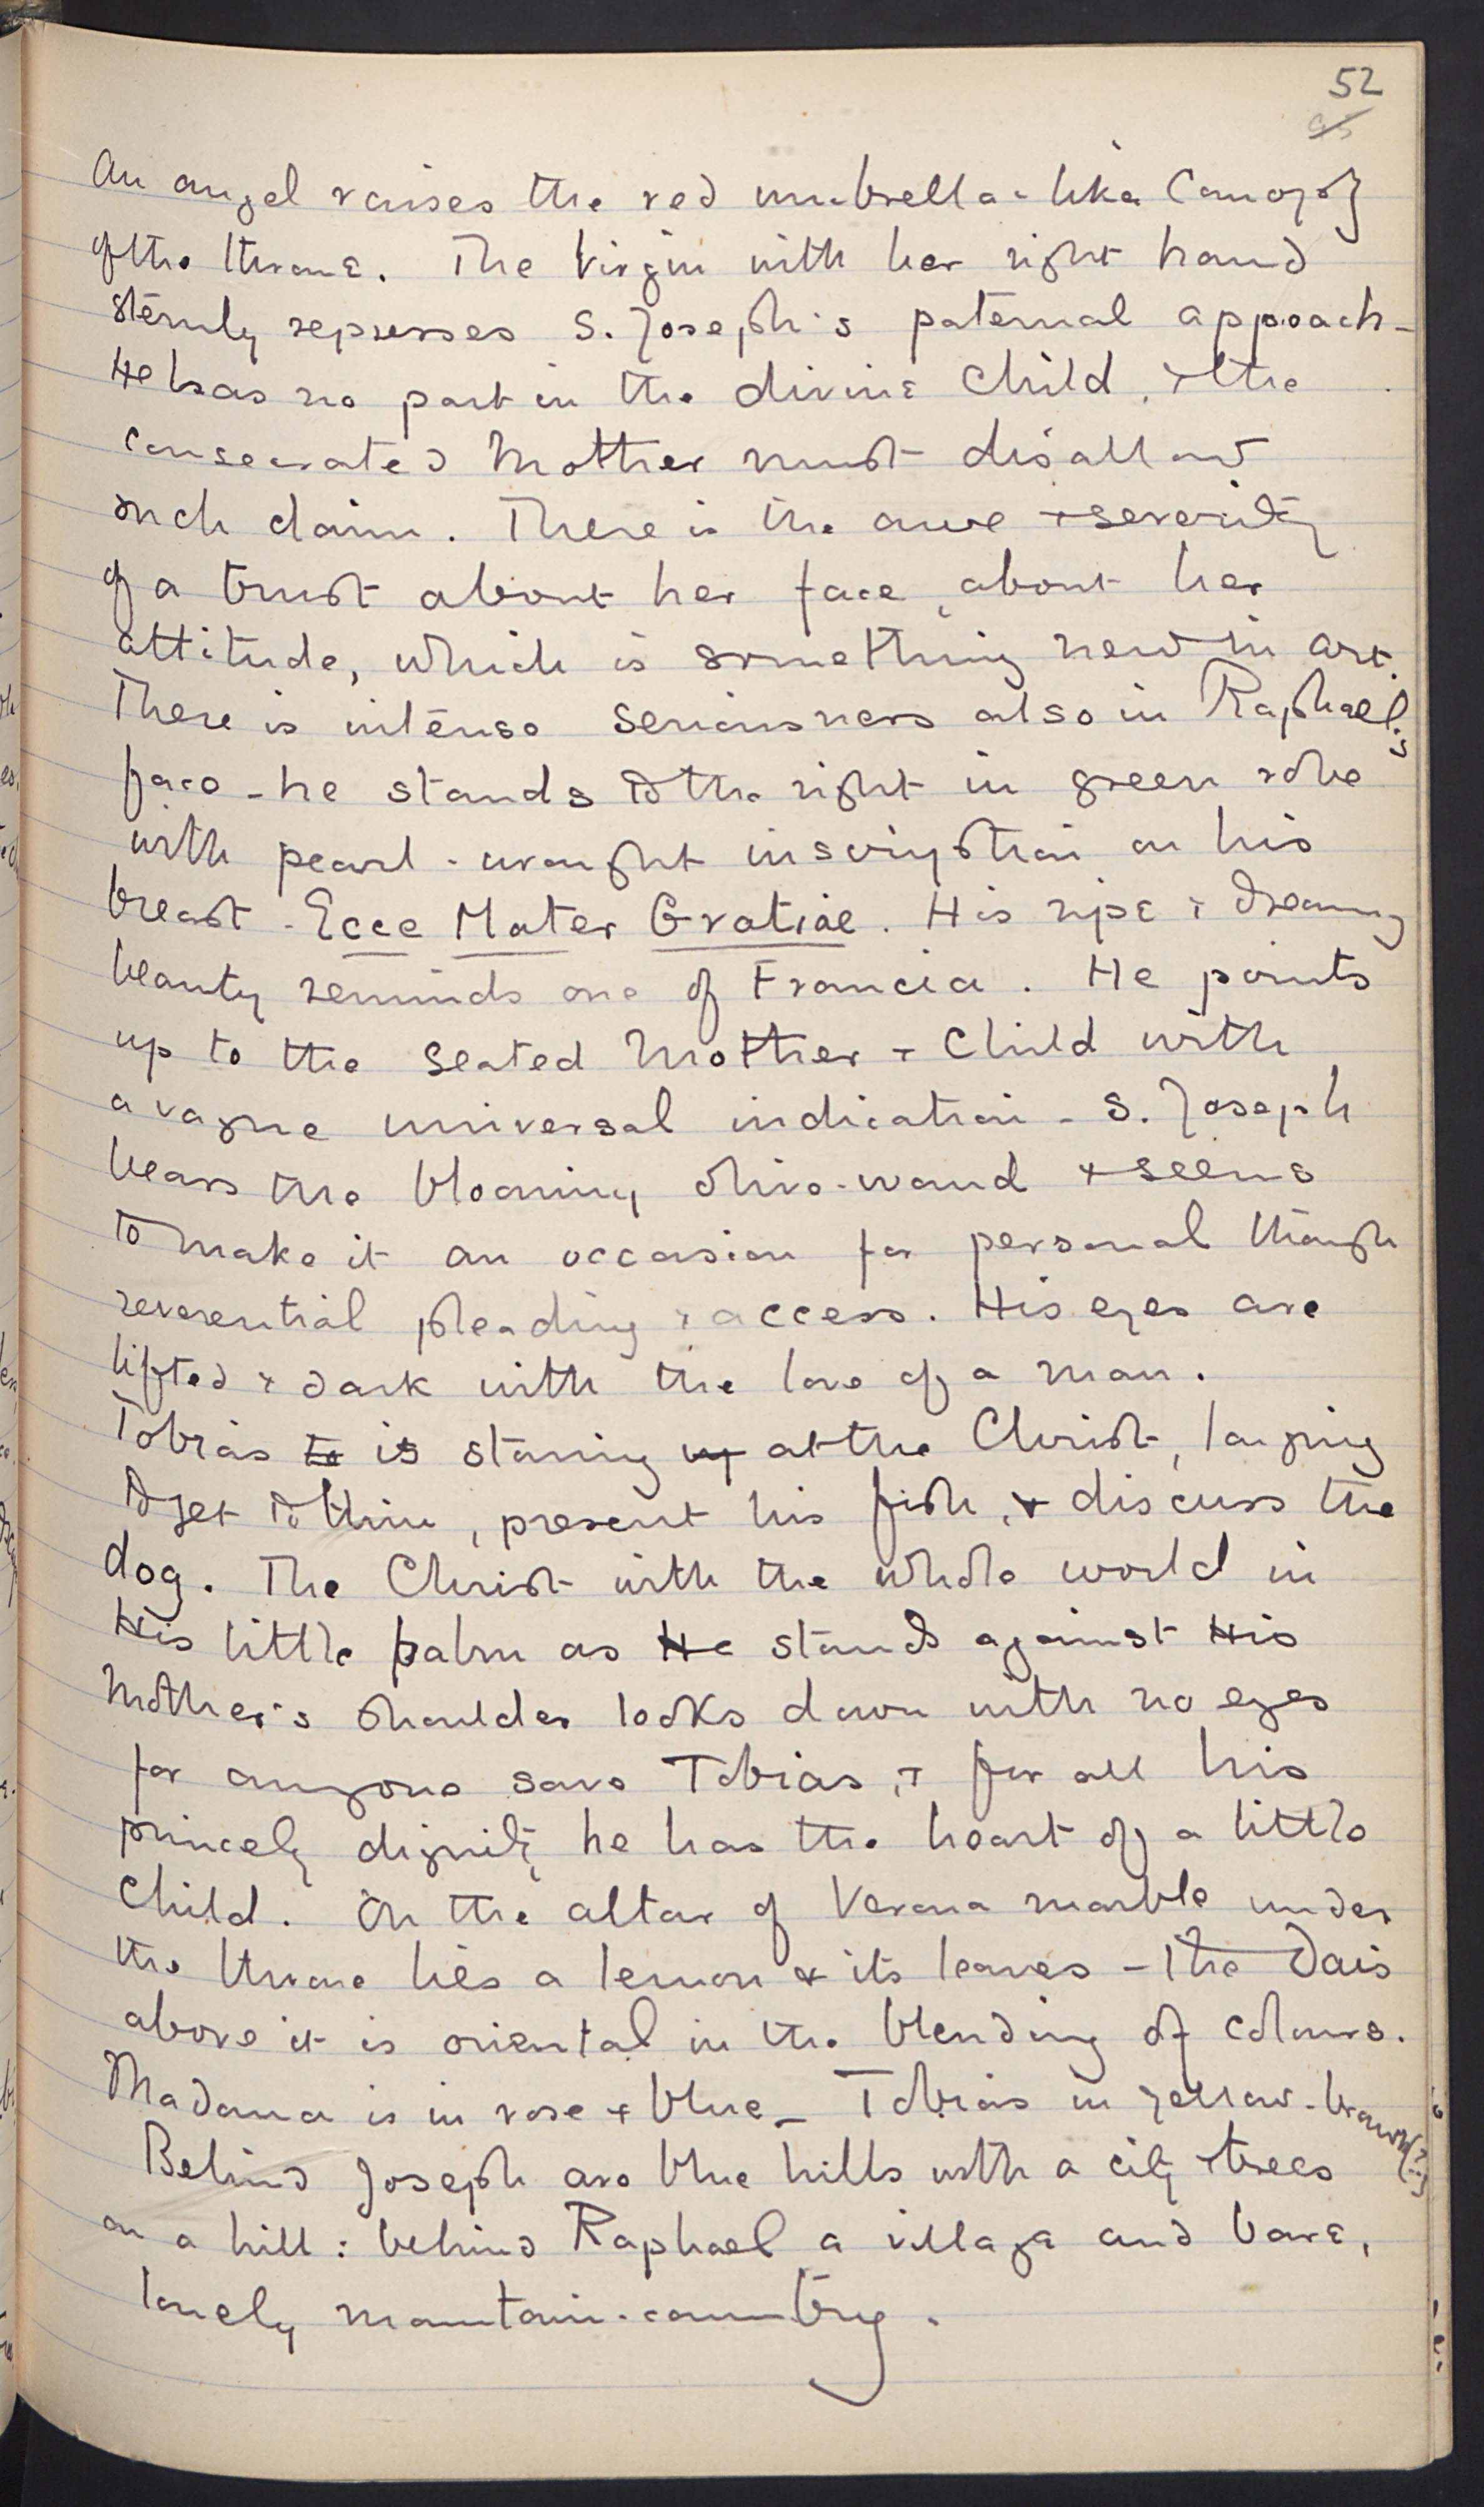 52
An angel raises the red umbrella-like Canopy
of the throne. The Virgin with her right hand
sternly represses S. Joseph's paternal approach -
He has no part in the divine Child, & the
consecrated Mother must disallow
such claim. There is the awe & severity
of a trust about her face, about her
attitude, which is something new in art.
There is intense seriousness also in Raphael's
face - he stands to the right in green robe
with pearl-wrought inscription on his
breast - Ecce Mater Gratiae. His ripe & dreamy
beauty reminds one of Francia. He points
up to the seated Mother & Child with
a vague universal indication - S. Joseph
bears the blooming olive-wand & seems
to make it an occasion for personal though
reverential pleading & access. His eyes are
lifted & dark with the love of a man.
Tobias to is staring up at the Christ, longing
to get to him, present his fish, & discuss the
dog. The Christ with the whole world in
His little palm as He stands against His
Mother's shoulder looks down with no eyes
for anyone save Tobias, & for all his
princely dignity he has the heart of a little
Child. On the altar of Verona marble under
the throne lies a lemon & its leaves - the dais
above it is oriental in the blending of colours.
Madonna is in rose & blue - Tobias in yellow-brown (?)
Behind Joseph are blue hills with a city & trees
on a hill: behind Raphael a village and bare,
lonely mountain-country.